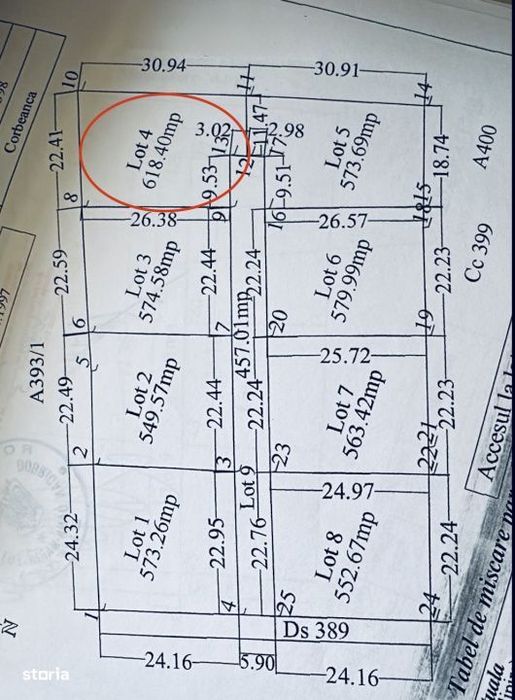 Corbeanca
10
30.94
11
30.91
14
22.41
Lot 4
618.40mp
3.02
13
12
11.47
2.98
17
Lot 5
573.69mp
18.74
A400
8
9.53
9
9.51
16
18
15
26.38
26.57
22.59
Lot 3
574.58mp
22.44
22.24
Lot 6
579.99mp
22.23
Cc 399
6
7
457.01mp
20
19
A393/1
5
25.72
22.49
Lot 2
549.57mp
22.44
22.24
Lot 7
563.42mp
22.23
2
3
Lot 9
23
22
21
24.97
24.32
Lot 1
573.26mp
22.95
22.76
Lot 8
552.67mp
22.24
1
4
25
24
Ds 389
24.16
5.90
24.16
N
Accesul la
Tabel de miscare
storia